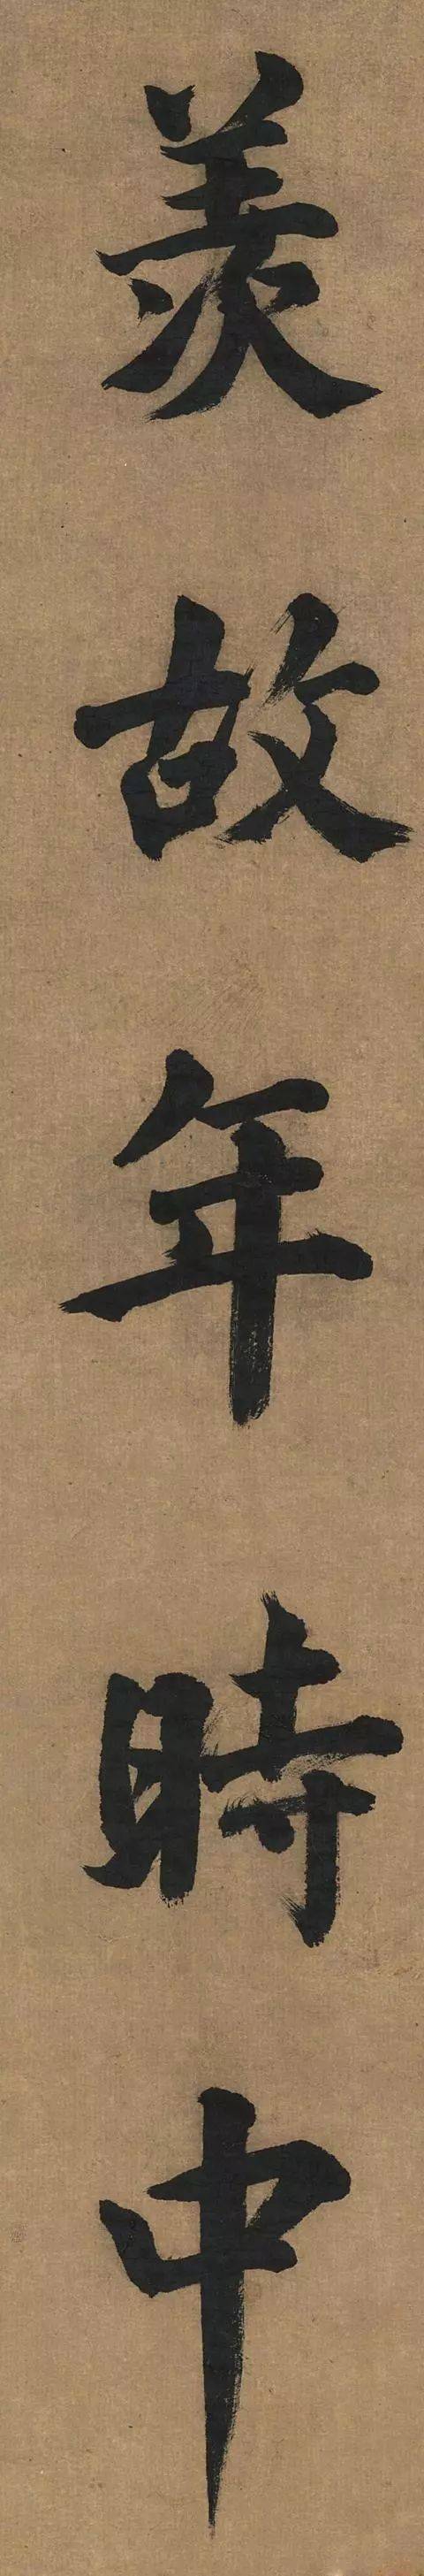 羨故年時中